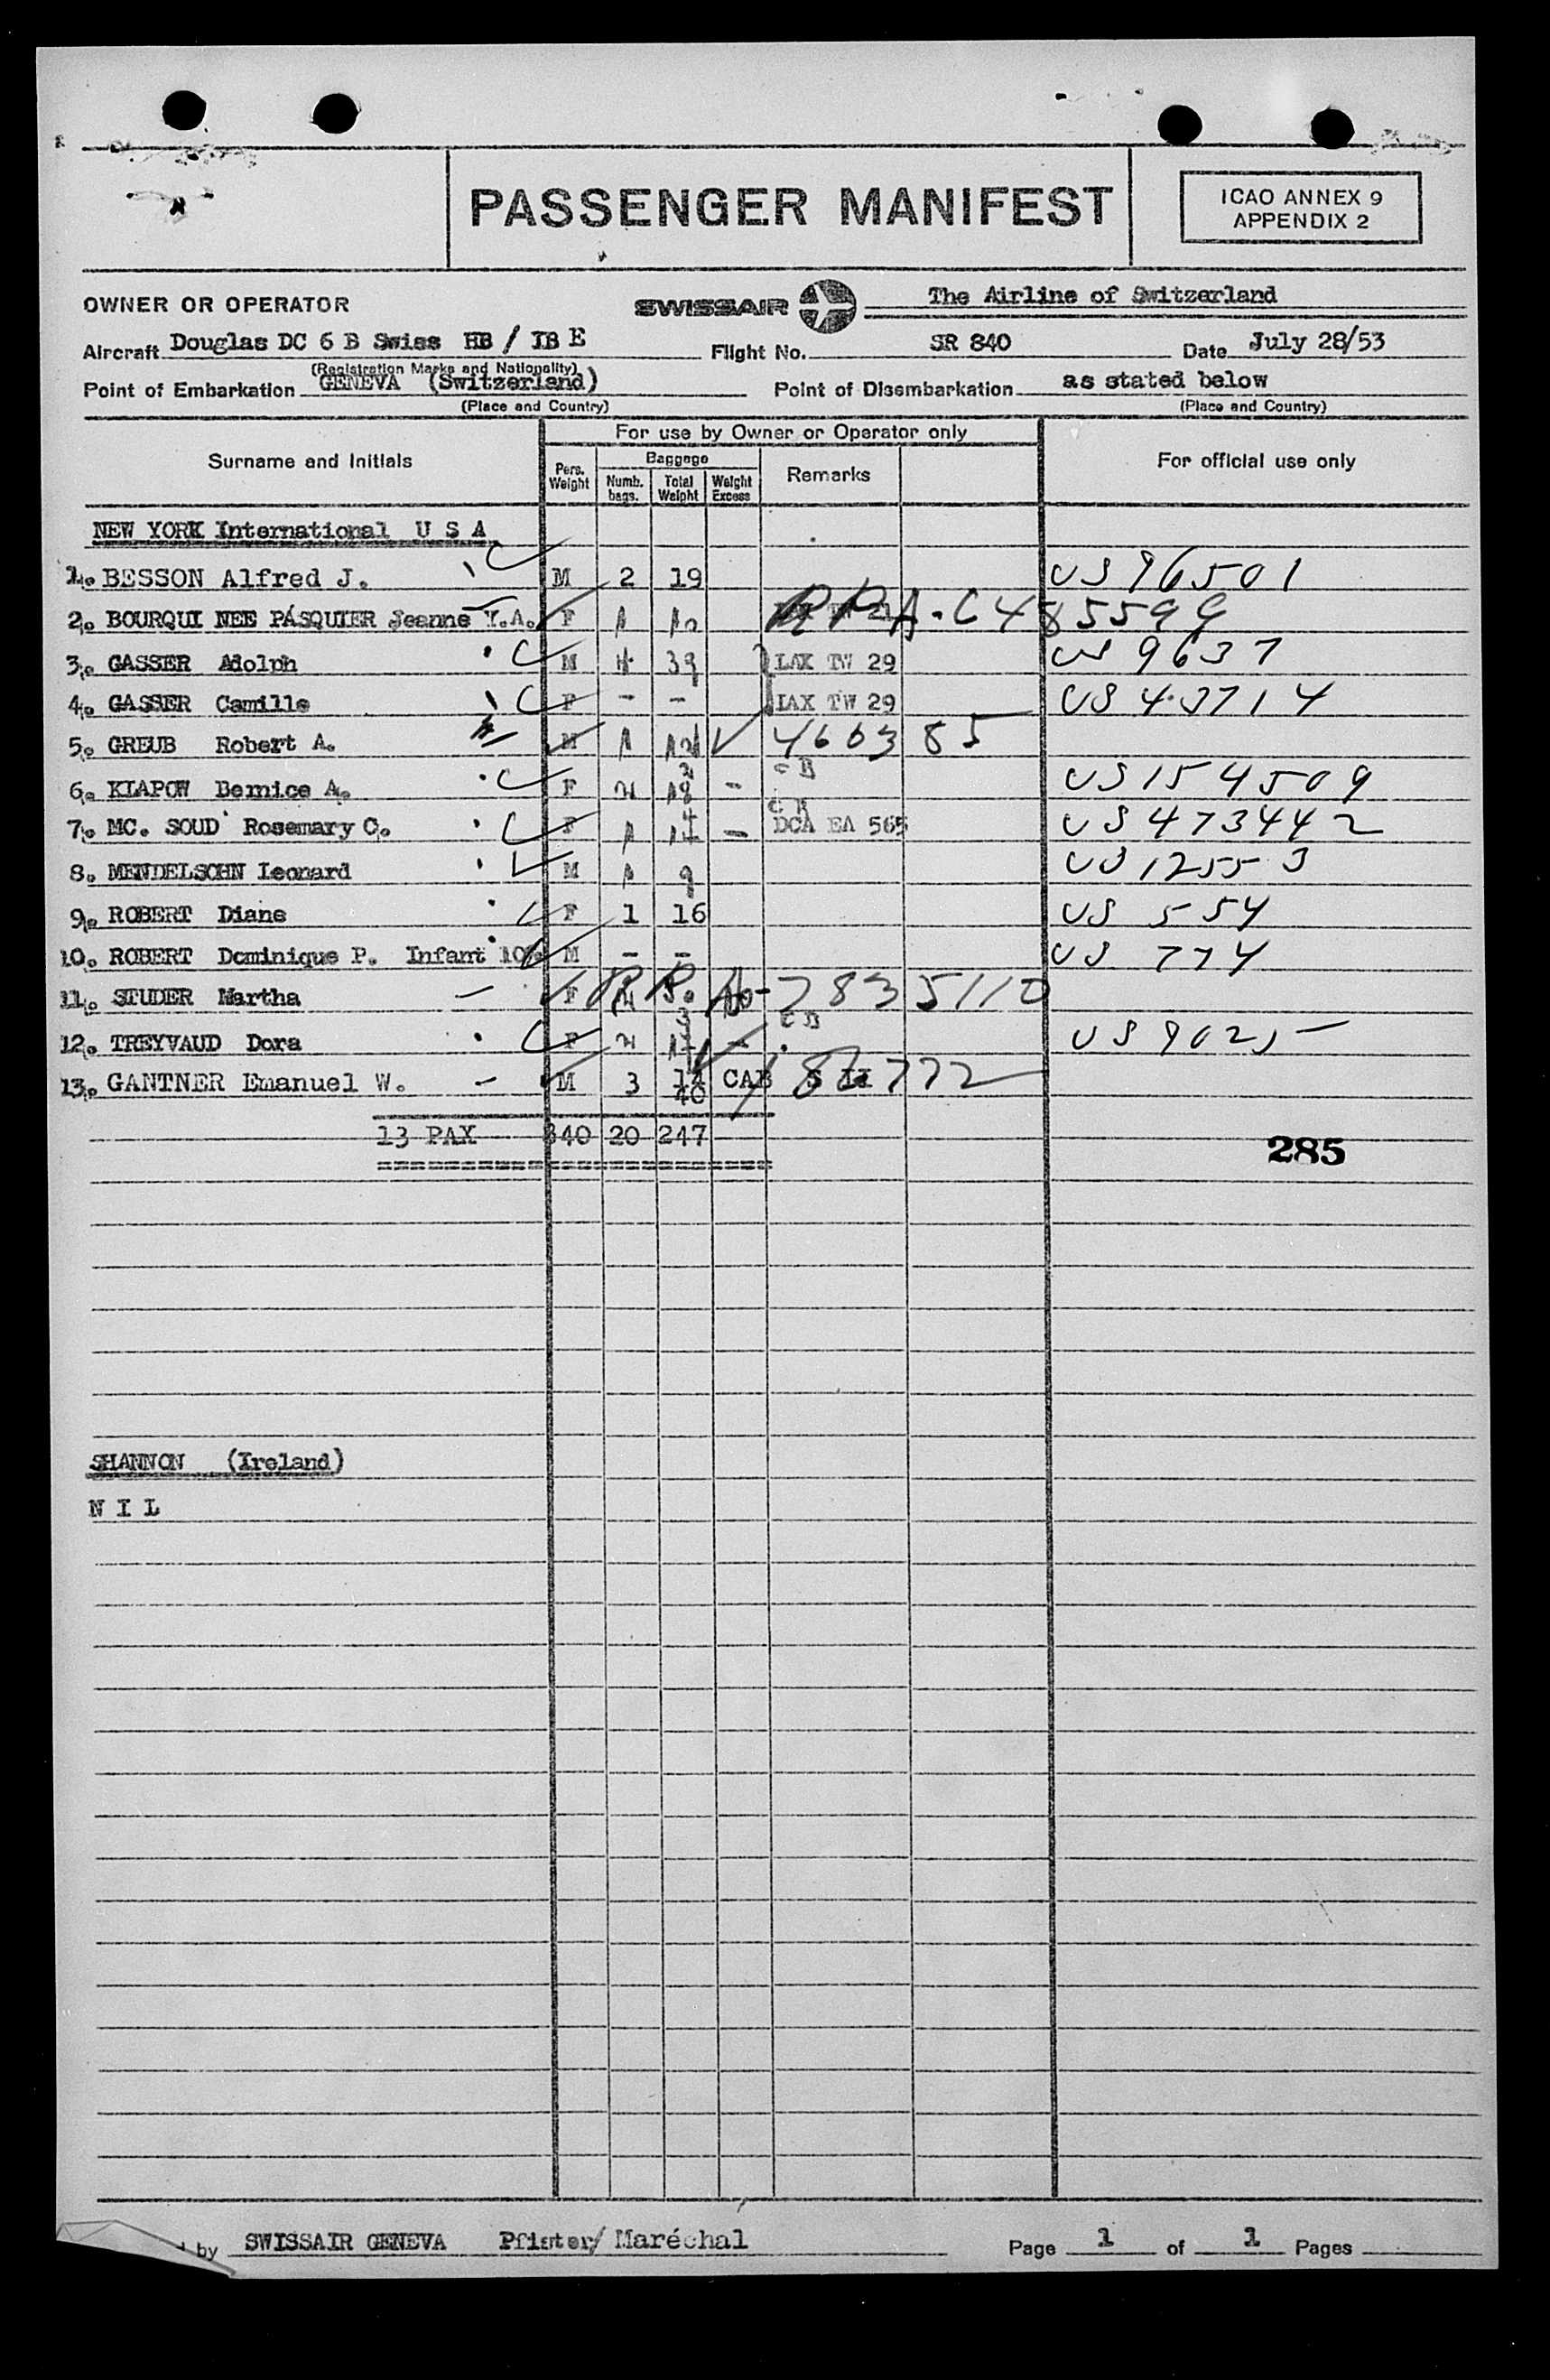 PASSENGER MANIFEST
ICAO ANNEX 9
APPENDIX 2
OWNER OR OPERATOR SWISSAIR The Airline of Switzerland
Aircraft Douglas DC 6 B Swiss HB / IB E Flight No. SR 840 Date July 28/53
(Registration Marks and Nationality)
Point of Embarkation GENEVA (Switzerland) Point of Disembarkation as stated below
(Place and Country) (Place and Country)
For use by Owner or Operator only
Surname and Initials Pers. Weight Baggage Numb. bags. Total Weight Weight Excess Remarks For official use only
NEW YORK International U S A
1. BESSON Alfred J. M 2 19 US 96501
2. BOURQUI NEE PASQUIER Jeanne Y.A. F 1 10 RPA-C485599
3. GASSER Adolph M 4 39 LAX TW 29 US 9637
4. GASSER Camille F - - LAX TW 29 US 43714
5. GREUB Robert A. M 1 460385
6. KLAPOW Bernice A. F 2 18 - US 154509
7. MC. SOUD Rosemary C. F 1 - DCA EA 565 US 473442
8. MENDELSOHN Leonard M 1 9 US 12553
9. ROBERT Diane F 1 16 US 554
10. ROBERT Dominique P. Infant 10% M - - US 774
11. STUDER Martha F RPA 7835110
12. TREYVAUD Dora F 2 17 - US 902
13. GANTNER Emanuel W. M 3 CAB 186772
13 PAX 840 20 247
285
SHANNON (Ireland)
N I L
by SWISSAIR GENEVA Pfister/ Maréchal Page 1 of 1 Pages